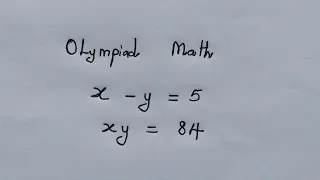 Olympiad Math
x - y = 5
xy = 84